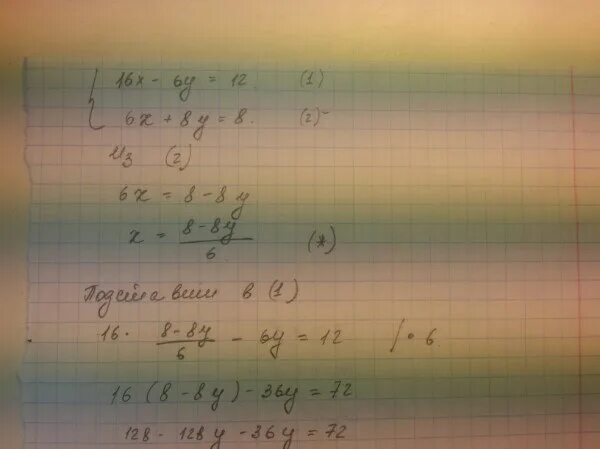 16x - 6y = 12 (1)
6x + 8y = 8. (2)
Из (2)
6x = 8 - 8y
x = (8 - 8y)/6 (*)
Подставим в (1)
16 · (8 - 8y)/6 - 6y = 12 / · 6
16 (8 - 8y) - 36y = 72
128 - 128y - 36y = 72